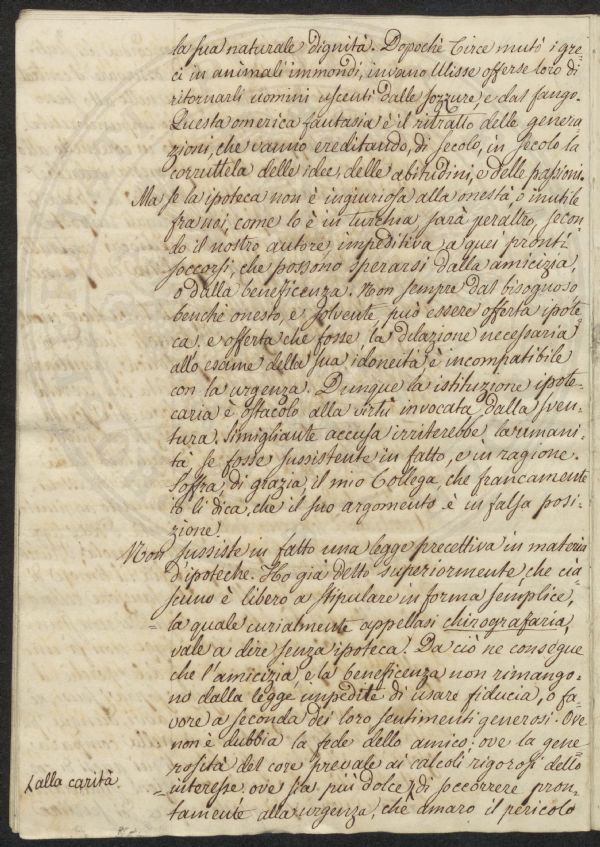 la sua naturale dignità. Dopochè Circe mutò i gre=
ci in animali immondi, invano Ulisse offerse loro di
ritornarli uomini uscenti dalle sozzure, e dal fango.
Questa omerica fantasia è il ritratto delle genera=
zioni, che vanno ereditando, di secolo, in secolo la
corruttela delle idee, delle abitudini, e delle passioni.
Ma se la ipoteca non è ingiuriosa alla onestà, o inutile
fra noi, come lo è in turchia sarà peraltro, secon=
do il nostro autore, impeditiva a quei pronti
soccorsi, che possono sperarsi dalla amicizia,
o dalla beneficenza. Non sempre dal bisognoso
benchè onesto, e solvente, può essere offerta ipote=
ca, e offerta che fosse, la dilazione necessaria
allo esame della sua idoneità è incompatibile
con la urgenza. Dunque la istituzione ipote=
caria è ostacolo alla virtù invocata dalla sven=
tura. Simigliante accusa irriterebbe la umani=
tà, se fosse sussistente in fatto, e in ragione.
Soffra, di grazia, il mio Collega, che francamente
io li dica, che il suo argomento è in falsa posi=
zione.
Non sussiste in fatto una legge precettiva in materia
d'ipoteche. Ho già detto superiormente, che cia=
scuno è libero a stipulare in forma semplice,
la quale curialmente appellasi chirografaria,
vale a dire senza ipoteca. Da ciò ne consegue
che l'amicizia e la beneficenza non rimango=
no dalla legge impedite di usare fiducia, o fa=
vore a seconda dei loro sentimenti generosi. Ove
non è dubbia la fede dello amico: ove la gene=
rosità del core prevale ai calcoli rigorosi dello
interesse, ove sia più dolce di soccorrere pron=
alla carità
tamente alla urgenza, che amaro il pericolo